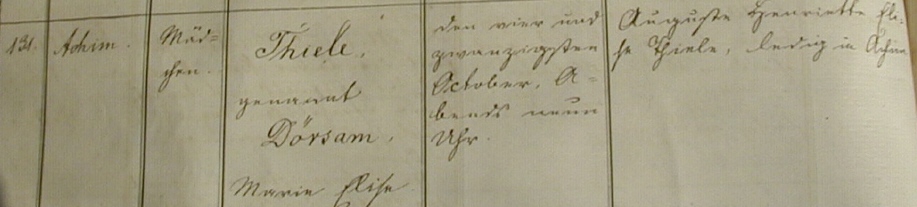 131.
Achim.
Mäd=
chen.
Thiele,
genannt
Dörsam,
Marie Elise
den vier und
zwanzigsten
October, A=
bends neun
Uhr.
Auguste Henriette Eli=
se Thiele, ledig in Achim